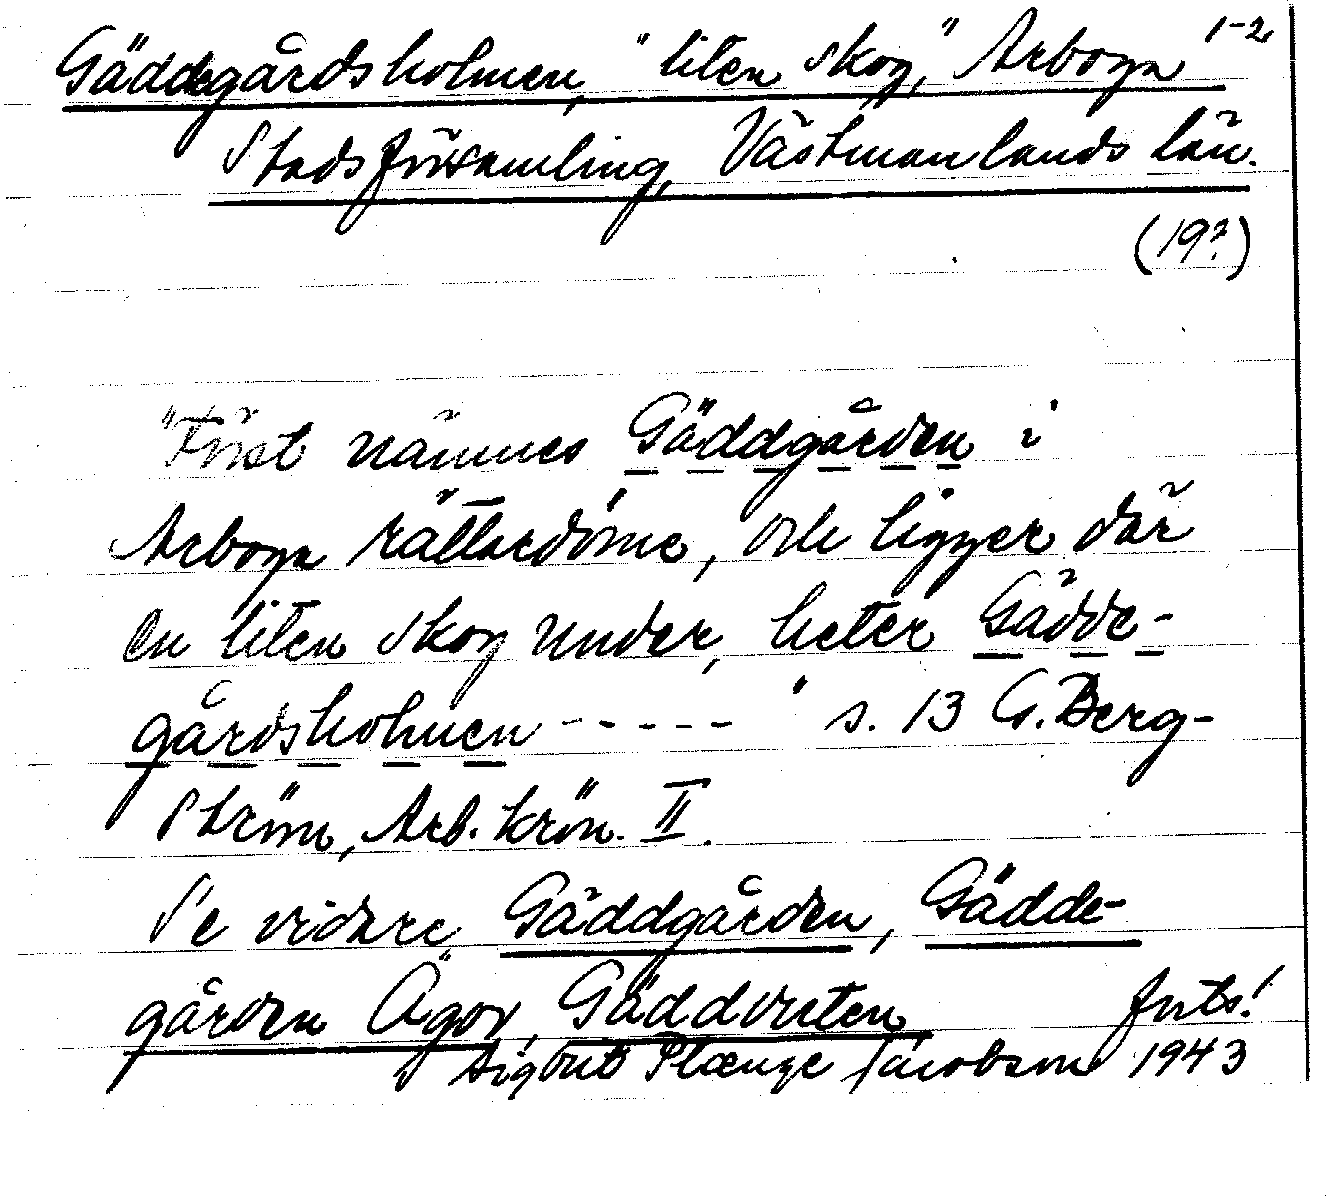 Gäddegårdsholmen, "liten skog," Arboga 1-2
Stadsförsamling, Västmanlands län.
(19?)
"Först nämnes Gäddgården i
Arboga rättardöme, och ligger där
en liten skog under, heter Gädde-
gårdsholmen ----- " s. 13 G. Berg-
ström, Arb. krön. II.
Se vidare Gäddgården, Gädde-
gården Ägor, Gäddvreten forts!
Sigbrit Plænge Jacobson 1943